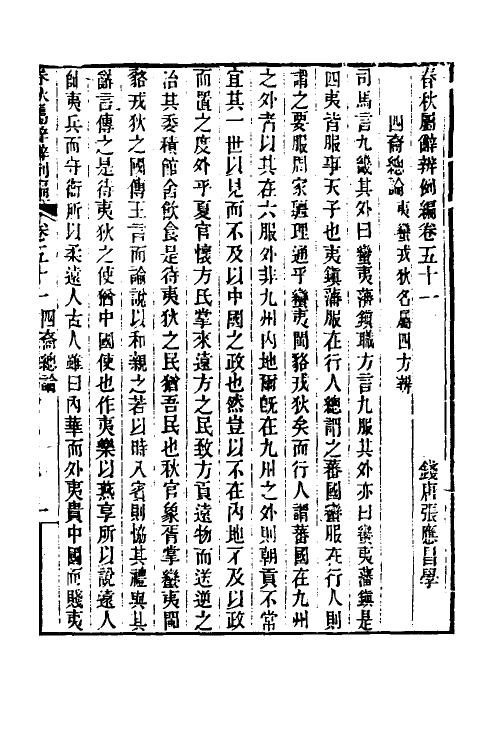 春秋屬辭辨例編卷五十一
錢唐張應昌學
四裔總論 夷蠻戎狄名屬四方辨
司馬言九畿其外曰蠻夷藩鎮職方言九服其外亦曰蠻夷藩鎮是
四夷皆服事天子也夷鎮藩服在行人總謂之蕃國蠻服在行人則
謂之要服周家疆理通乎蠻夷閩貉戎狄矣而行人謂蕃國在九州
之外者以其在六服外非九州內地爾旣在九州之外則朝貢不常
宜其一世以見而不及以中國之政也然豈以不在內地不及以政
而置之度外乎夏官懷方氏掌來遠方之民致方貢遠物而送逆之
治其委積館舍飲食是待夷狄之民猶吾民也秋官象胥掌蠻夷閩
貉戎狄之國傳王言而諭說以和親之若以時入賓則協其禮與其
辭言傳之是待夷狄之使猶中國使也作夷樂以燕享所以說遠人
師夷兵而守衛所以柔遠人古人雖曰內華而外夷貴中國而賤夷
春秋屬辭辨例編 卷五十一 四裔總論 一